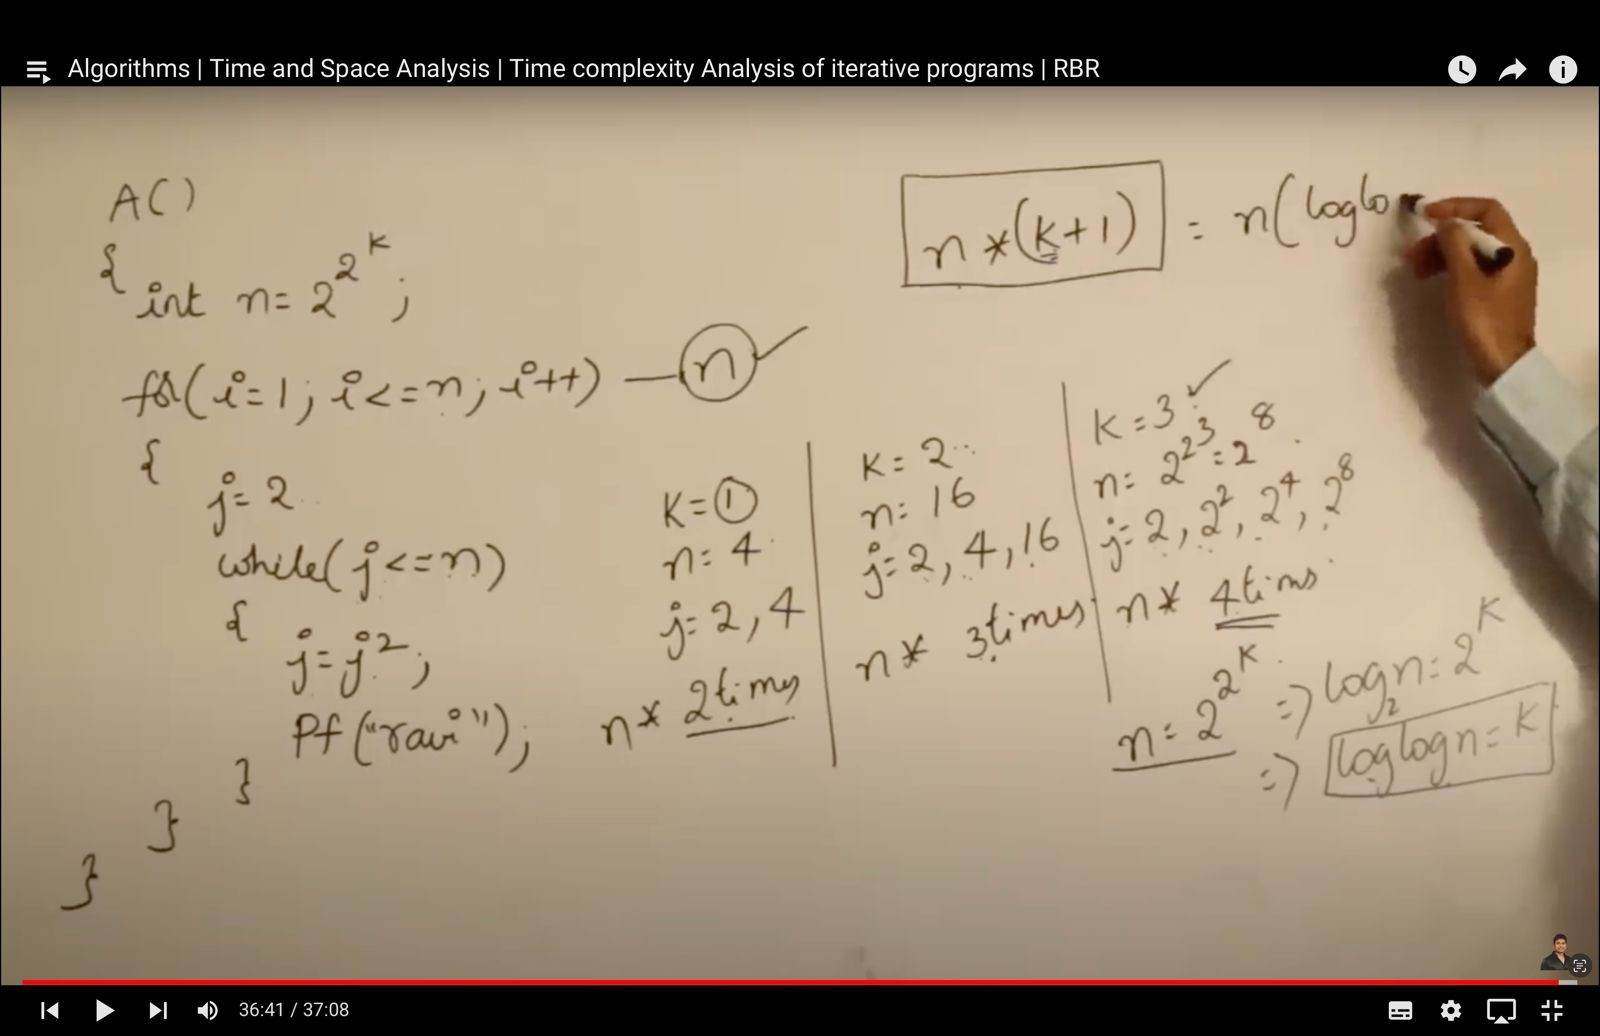 Algorithms | Time and Space Analysis | Time complexity Analysis of iterative programs | RBR
A()
{
int n = 2^2^k ;
for(i=1; i<=n; i++) — n ✓
{
j= 2
while(j<=n)
{
j=j²;
Pf("ravi");
}
}
}
n*(k+1) = n(loglo
K=1
n= 4
j=2, 4
n* 2times
K= 2
n= 16
j=2, 4, 16
n* 3times
K=3 ✓
n= 2^2^3 = 2^8
j=2, 2^2, 2^4, 2^8
n* 4tims
n= 2^2^K => log₂n= 2^K
=> loglogn=K
36:41 / 37:08